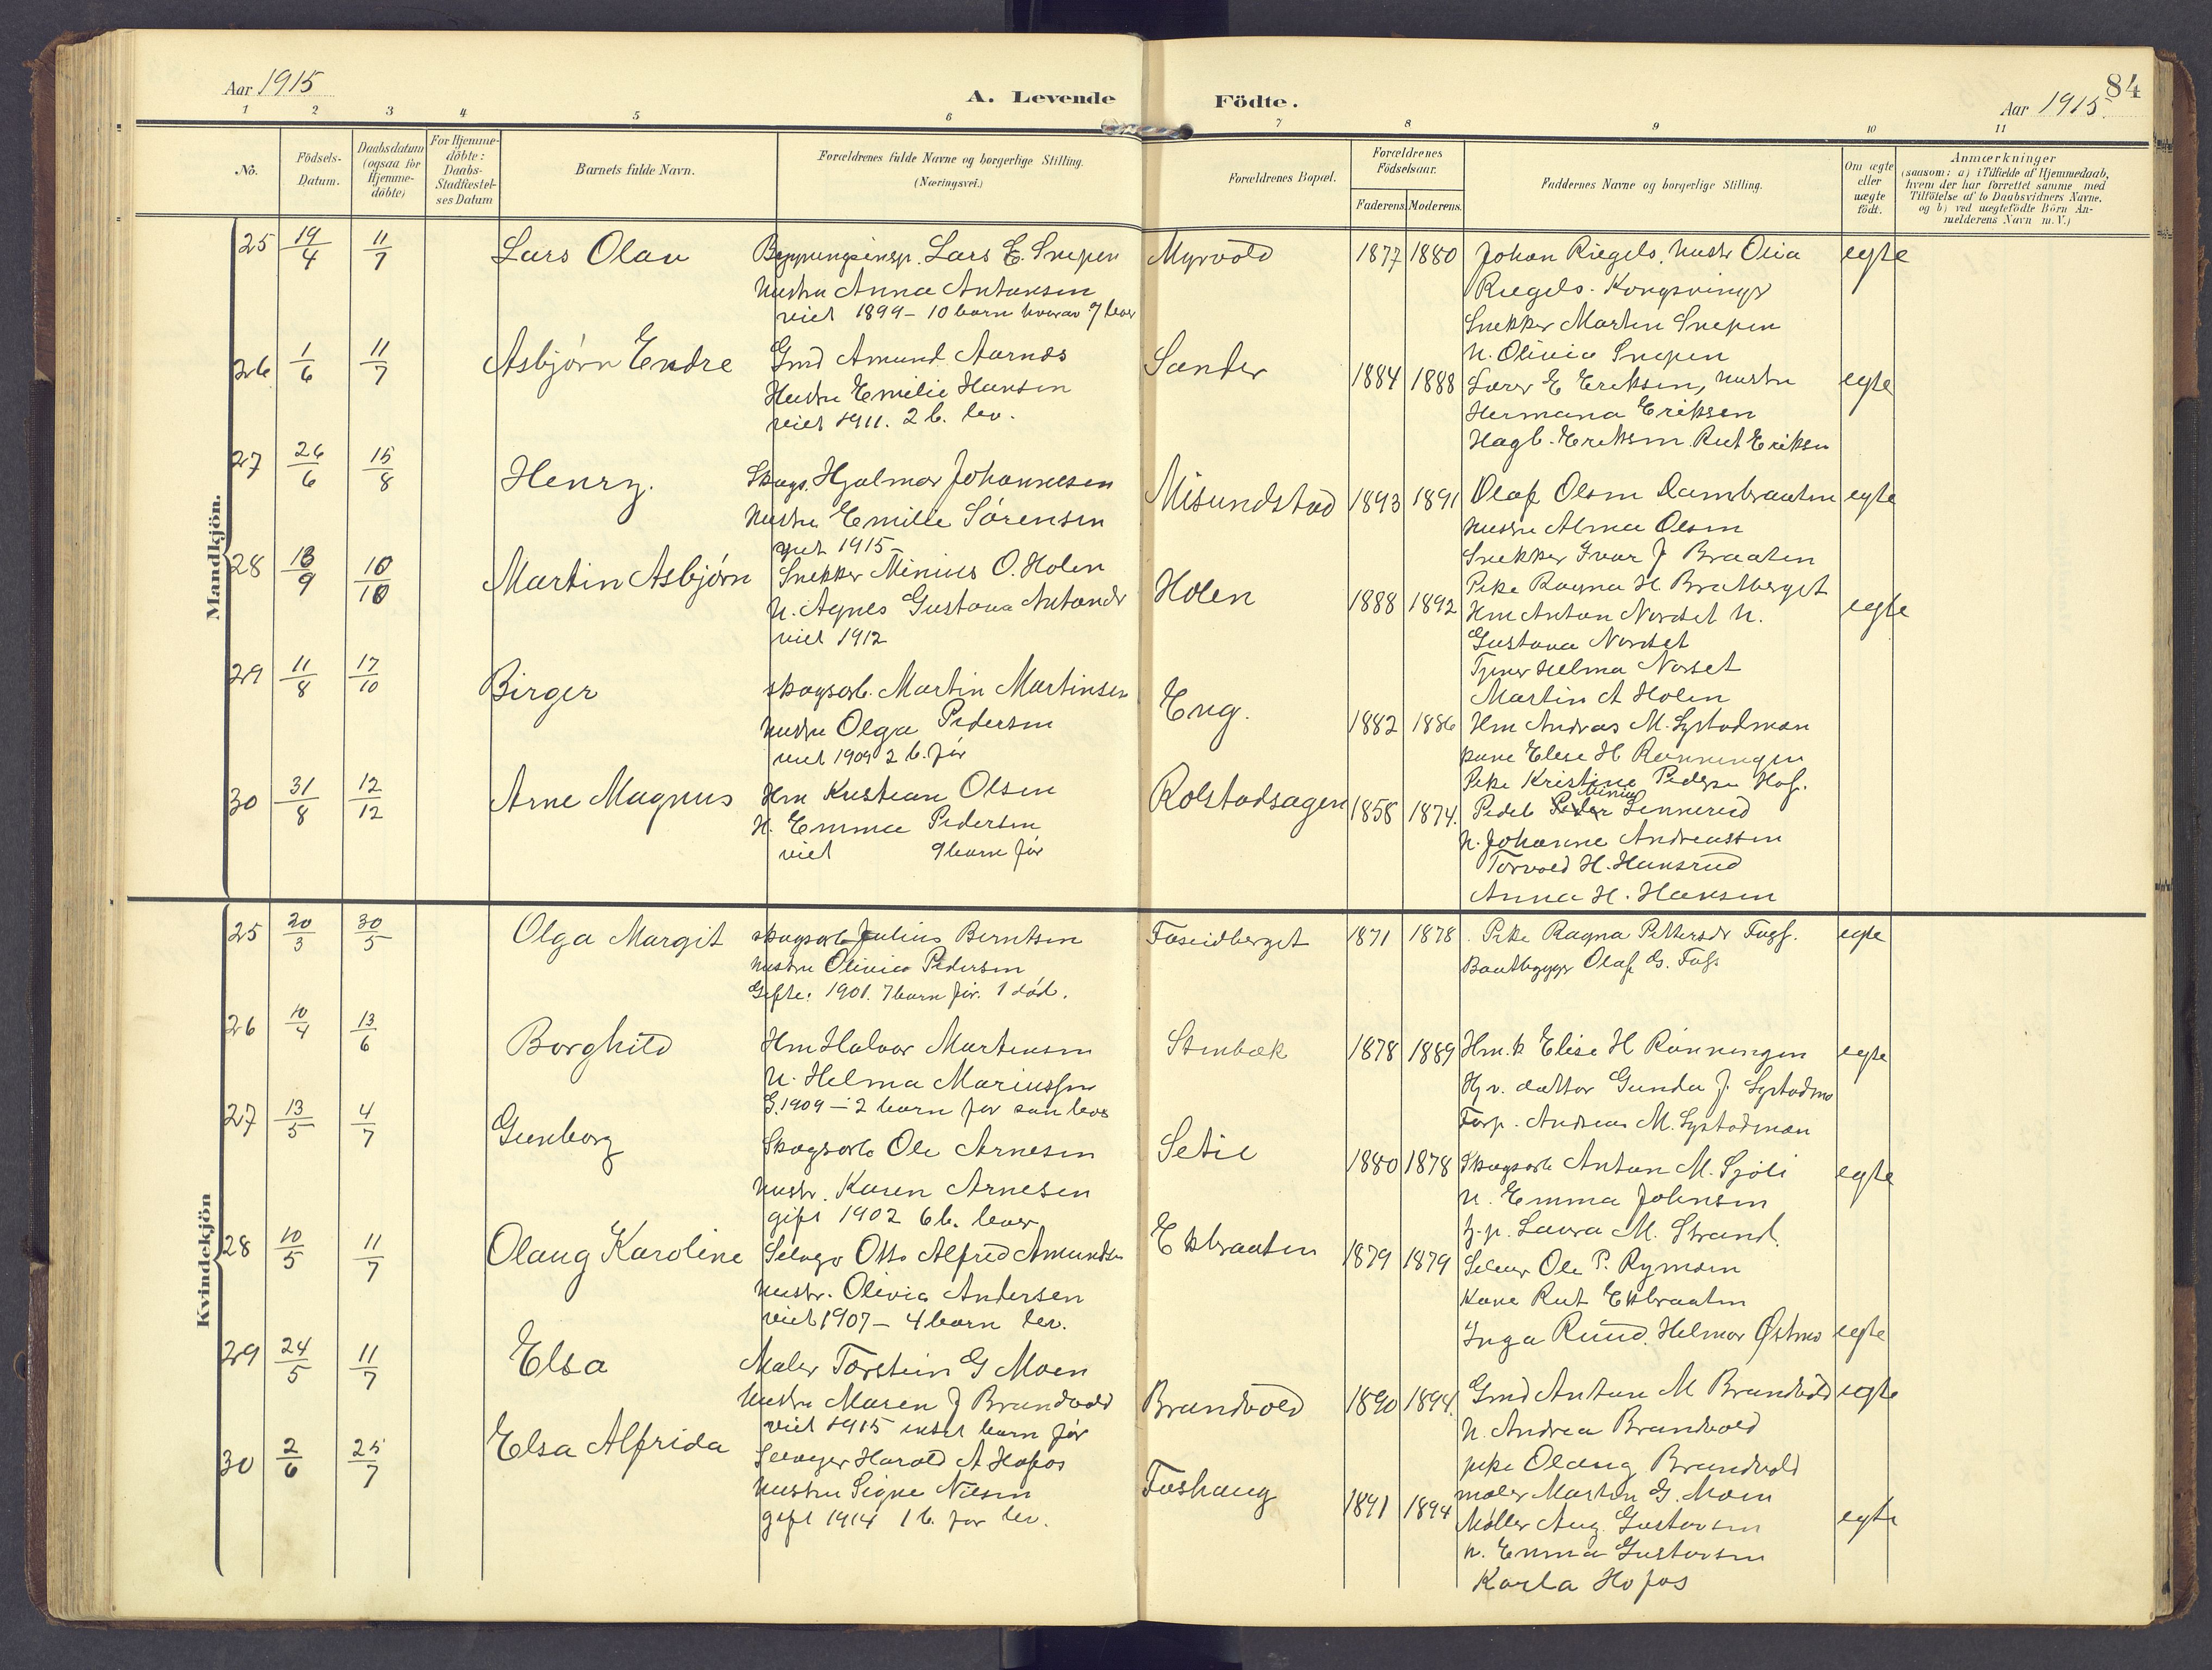 Aar 1915
A. Levende Födte.
84
Aar 1915.
1 2 3 4 5 6 7 8 9 10 11
No.
Födsels-Datum.
Daabsdatum (ogsaa for Hjemme-döbte)
For Hjemme-döbte: Daabs-Stadfæstel-ses Datum
Barnets fulde Navn.
Forældrenes fulde Navne og borgerlige Stilling. (Næringsvei.)
Forældrenes Bopæl.
Forældrenes Födselsaar.
Faderens. Moderens.
Faddernes Navne og borgerlige Stilling.
Om ægte eller uægte födt.
Anmærkninger
(saasom: a) i Tilfælde af Hjemmedaab,
hvem der har forrettet samme med
Tilföielse af to Daabsvidners Navne,
og b) ved uægtefödte Börn An-
melderens Navn m. V.)
Mandkjön.
25 19/4 11/7 Lars Olav Lars E. Snepen Myrvold 1877 1880 Johan Riegels, hustr Olia egte
Hustru Anna Antonsen Riegels. Kongsvinger
viet 1899 - 10 barn hvorav 7 lever Snekker Martin Snepen
H. Olivia Snepen
26 1/6 11/7 Asbjørn Endre Gmd Amund Aarnes Sander 1884 1888 Lærer E Eriksen, hustru egte
Hustru Emilie Hansen Hermana Eriksen
viet 1911. 2 b. lev. Hagb. Eriksen. Rut Eriksen
27 26/6 15/8 Henry. Skogs. Hjalmar Johannesen Misundstad 1893 1891 Olaf Olsen Dambraaten egte
Hustru Emilie Sørensen Hustru Alma Olsen
viet 1915 - Snekker Ivar J Braaten
Pike Ragna H. Bratberget
28 13/9 10/10 Martin Asbjørn Snekker Minius O. Holen Holen 1888 1892 Hm Anton Nordset H. egte
H. Agnes Gustava Antonsdr Gustava Nordset
viet 1912 Tjener Helma Norset
Martin A Holen
29 11/8 17/10 Birger skogsarb. Martin Martinsen Eng. 1882 1886 Hm Andreas M. Systadmoen
Hustru Olga Pedersen kone Elise H Rønningen
viet 1909 2 b. før Pike Kristine Peders Hof.
30 31/8 12/12 Arne Magnus Hm Kristian Olsen Rolstadsagen 1858 1874. Minius Lennerud
H. Emma Pedersen H. Johanne Andreassen
viet 9 barn før Torvald H. Hansrud
Anna H. Hansen
Kvindekjön
25 20/3 30/5 Olga Margit skogsarb Julius Berntsen Foseidberget 1871 1878 Pike Ragna Pettersdr egte
Hustru Olivia Pedersen Olaf G.
Gifte: 1901. 7 barn før. 1 død.
26 10/4 13/6 Borghild Hm Halvor Martinsen Stenbæk 1878 1889 Hm. k Elise H Rønningen egte
H. Helma Mariussen Hjv. datter Gunda J. Systadmo
G. 1909 - 2 barn før som lever Andreas M. Systadmoen
27 13/5 4/7 Gunborg Skogsarb Ole Arnesen Setil 1880 1878 Skogsarb Anton M. Sjøli egte
Hustr. Karen Arnesen H. Emma Johnsen
gift 1902 6 b. lever Laura M. Strand.
28 10/5 11/7 Olaug Karoline Selvgr Otto Alfred Amundsen Ekbraaten 1879 1879 Selveier Ole P. Rymoen
Hustr. Olivia Andersen Kone Rut Ekbraaten
viet 1907 - 4 barn lev. Inga Ruud. Helmer Østmo egte
29 24/5 11/7 Elsa Maler Torstein G Moen Brandvold 1890 1894. Gmd Anton M Brandvold egte
Hustru Maren J Brandvold H. Andrea Brandvold
viet 1915 intet barn før pike Olaug Brandvold
maler Martin G. Moen
30 2/6 25/7 Elsa Alfrida Selveger Harald A Hofos Foshaug 1891 1894 Møller Aug. Gustavsen egte
Hustru Signe Nilsen H. Emma Gustavsen
gift 1914 1 b. før lev. Karla Hofos